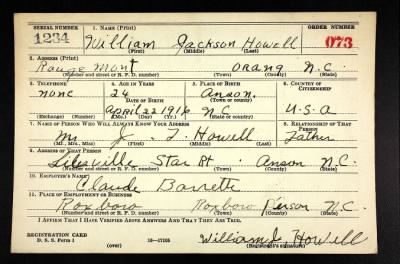 SERIAL NUMBER 1. NAME (Print) ORDER NUMBER
1234 William Jackson Howell 073
(First) (Middle) (Last)
2. ADDRESS (Print)
Rouge Mont Orang N.C.
(Number and street or R. F. D. number) (Town) (County) (State)
3. TELEPHONE 4. AGE IN YEARS 5. PLACE OF BIRTH 6. COUNTRY OF CITIZENSHIP
none 24 Anson.
DATE OF BIRTH (Town or county)
April 22 1916 N.C. U.S.A
(Exchange) (Number) (Mo.) (Day) (Yr.) (State or country)
7. NAME OF PERSON WHO WILL ALWAYS KNOW YOUR ADDRESS 8. RELATIONSHIP OF THAT PERSON
Mr J Howell Father
(Mr., Mrs., Miss) (First) (Middle) (Last)
9. ADDRESS OF THAT PERSON
Lilesville Star Rt. Anson N.C.
(Number and street or R. F. D. number) (Town) (County) (State)
10. EMPLOYER'S NAME
Claude Barrette
11. PLACE OF EMPLOYMENT OR BUSINESS
Roxboro Roxboro Person N.C.
(Number and street or R. F. D. number) (Town) (County) (State)
I AFFIRM THAT I HAVE VERIFIED ABOVE ANSWERS AND THAT THEY ARE TRUE.
REGISTRATION CARD
D. S. S. Form 1 (over) 16—17105 William J. Howell
(Registrant's signature)